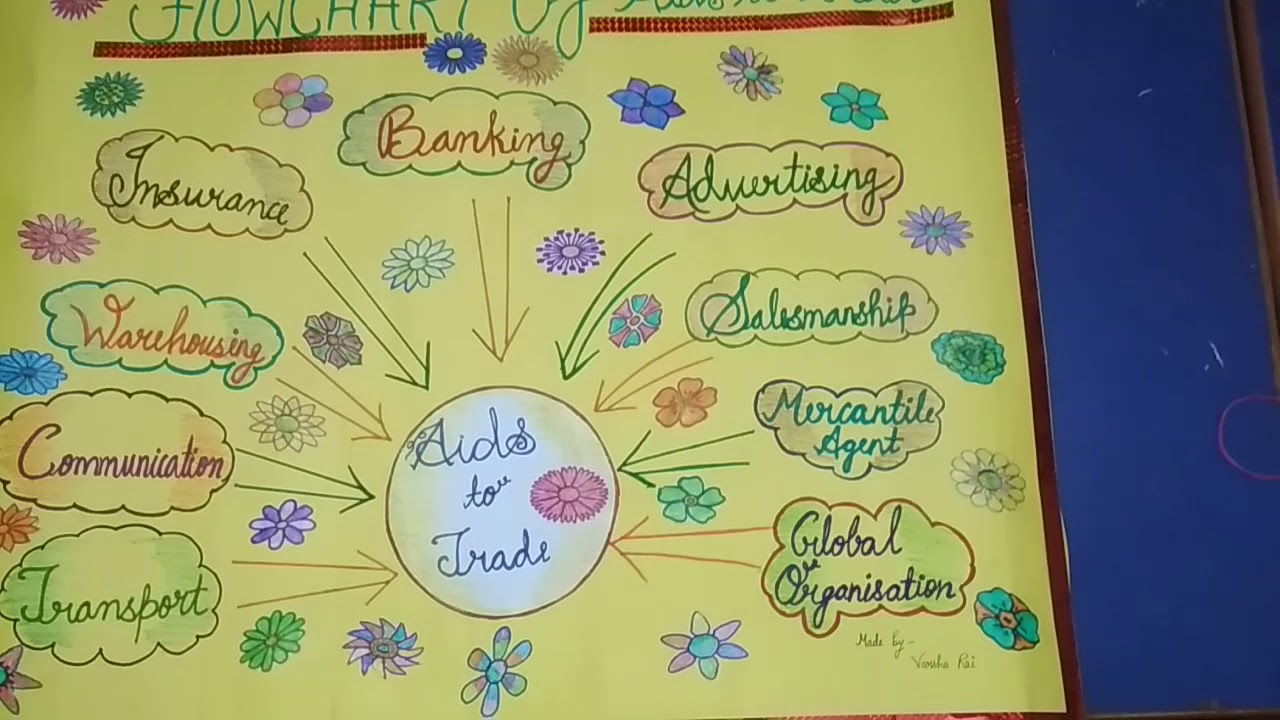 FLOWCHART Of Aids to Trade
Banking
Insurance
Advertising
Warehousing
Salesmanship
Communication
Mercantile
Agent
Transport
Global
Organisation
Aids
to
Trade
Made by-
Varsha Rai